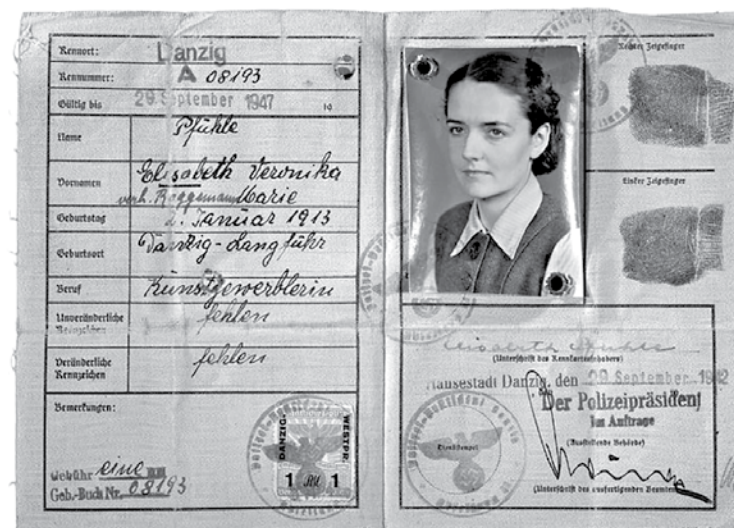 Kennort: Danzig
Kennummer: A 08193
Gültig bis 29. September 1947 19
Name Pfühle
Vornamen Elisabeth Veronika
verh. Roggemann Marie
Geburtstag 2. Januar 1913
Geburtsort Danzig-Langfuhr
Beruf Kunstgewerblerin
Unveränderliche Kennzeichen fehlen
Veränderliche Kennzeichen fehlen
Bemerkungen:
DANZIG-
WESTPR.
1 RM 1
Gebühr eine RM
Geb.-Buch Nr. 08193
Rechter Zeigefinger
Linker Zeigefinger
Elisabeth Pfühle
(Unterschrift des Kennkarteninhabers)
Hansestadt Danzig, den 29. September 1942
Der Polizeipräsident
Im Auftrage
(Ausstellende Behörde)
Dienststempel
(Unterschrift des ausfertigenden Beamten)